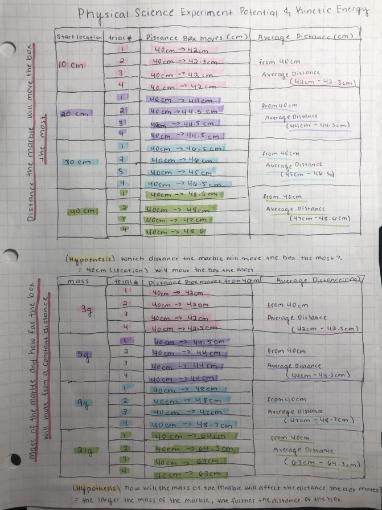 Physical Science Experiment Potential & Kinetic Energy
Distance the marble will move the box the most
Start location | trial # | Distance Box moves (cm) | Average Distance (cm)
10 cm
1 | 40cm → 42cm
2 | 40cm → 42.5cm | from 40cm
3 | 40cm → 42cm | Average Distance
4 | 40cm → 42cm | (42cm - 42.5cm)
20 cm
1 | 40cm → 44cm
2 | 40cm → 44.5cm | from 40cm
3 | → 44.5cm | Average Distance
4 | 40cm → 44.5cm | (44cm - 44.5cm)
30 cm
1 | 40cm → 46.5cm
2 | 40cm → 46cm | from 40cm
3 | 40cm → 45cm | Average Distance
4 | 40cm → 46.5cm
40 cm
1 | 40cm → 48.5cm | from 40cm
2 | 40cm → | Average Distance
3 | 40cm → 47cm
4 | 40cm →
(Hypothesis) Which distance the marble will move the box the most?
= 40cm (location) will move the box the most
Mass of the marble and how far the box will move from a constant distance
mass | trial # | Distance Box moves from 40cm | Average Distance (cm)
3g
1 | 40cm → 42cm
2 | 40cm → | from 40cm
3 | 40cm → | Average Distance
4 | 40cm → 42.5cm | (42cm - 42.5cm)
5g
1 | 40cm → 44.5cm
2 | 40cm → 44cm | from 40cm
3 | 40cm → 44cm | Average Distance
4 | 40cm → 44cm | (44cm - 44.5cm)
9g
1 | 40cm → 48cm
2 | 40cm → 48cm | from 40cm
3 | 40cm → 47cm | Average Distance
4 | 40cm → 48.7cm | (47cm - 48.7cm)
1 | 40cm → 64cm | from 40cm
2 | 40cm → 64.3cm | Average Distance
3 | 40cm → 63cm | (63cm - 64.3cm)
4 | 40cm → 63cm
(Hypothesis) how will the mass of the marble will affect the distance the box moves?
= the larger the mass of the marble, the further the distance of the box